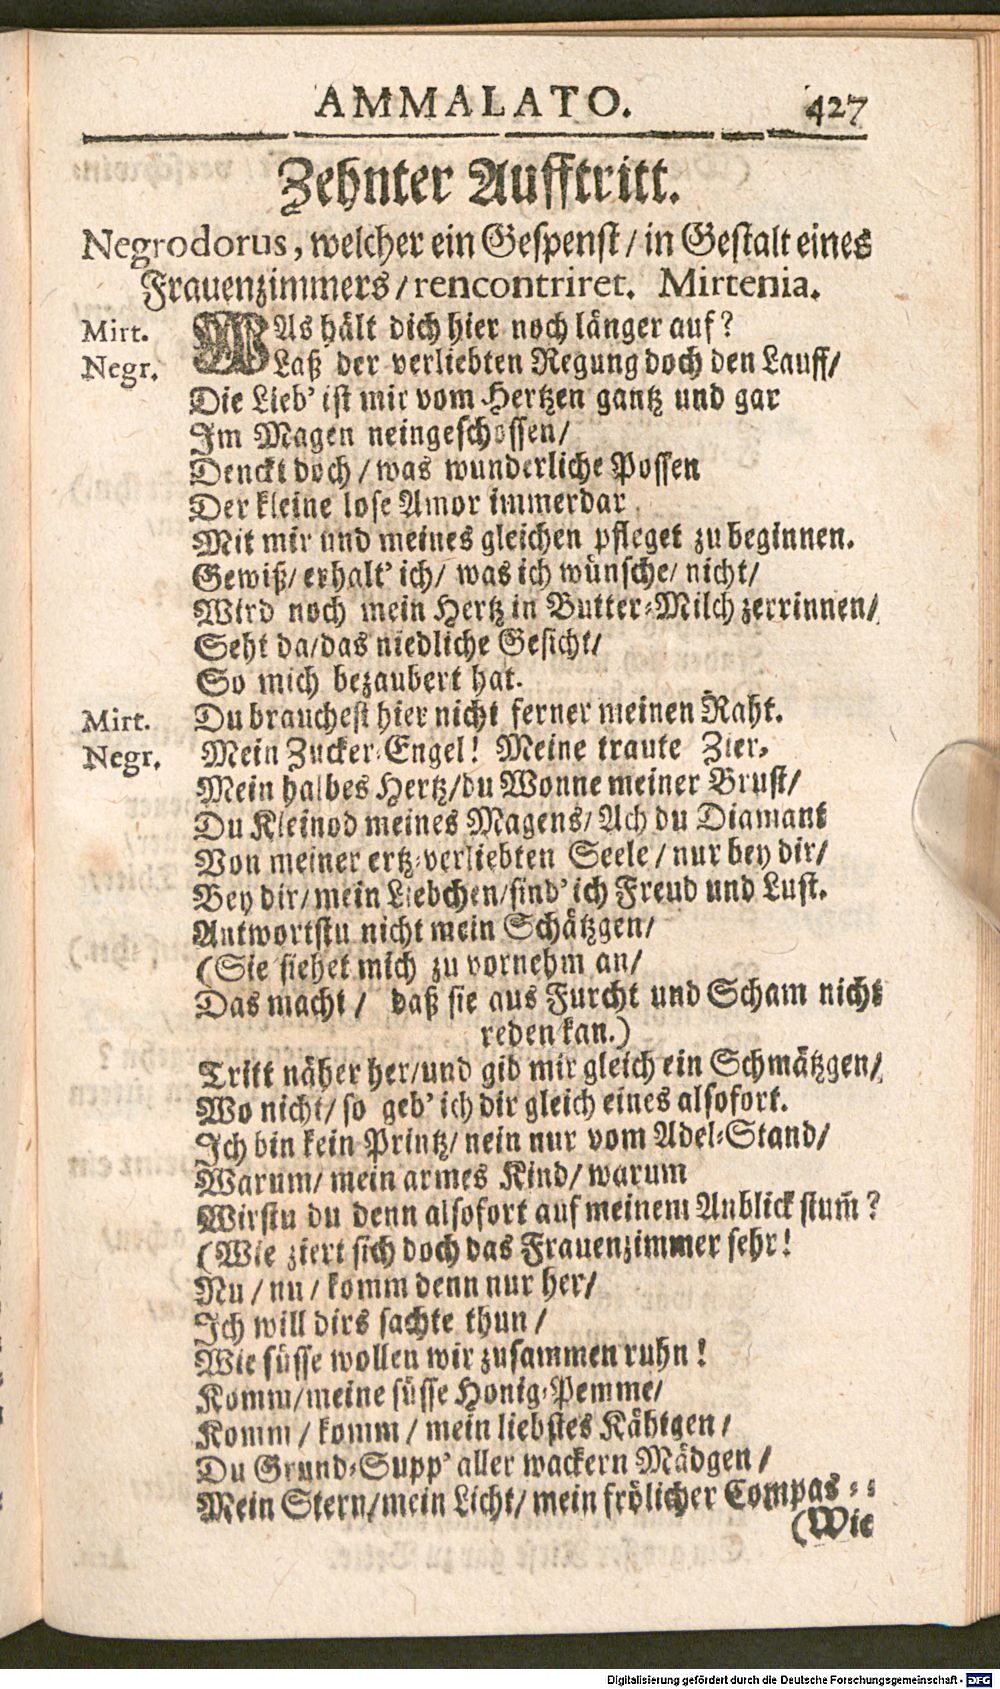 AMMALATO. 427
Zehnter Aufftritt.
Negrodorus, welcher ein Gespenst / in Gestalt eines
Frauenzimmers / rencontriret. Mirtenia.
Mirt. WAs hält dich hier noch länger auf?
Negr. Laß der verliebten Regung doch den Lauff/
Die Lieb' ist mir vom Hertzen gantz und gar
Im Magen neingeschossen/
Denckt doch / was wunderliche Possen
Der kleine lose Amor immerdar
Mit mir und meines gleichen pfleget zu beginnen.
Gewiß/ erhalt' ich/ was ich wünsche/ nicht/
Wird noch mein Hertz in Butter-Milch zerrinnen/
Seht da/das niedliche Gesicht/
So mich bezaubert hat.
Mirt. Du brauchest hier nicht ferner meinen Raht.
Negr. Mein Zucker-Engel! Meine traute Zier,
Mein halbes Hertz/du Wonne meiner Brust/
Du Kleinod meines Magens/ Ach du Diamant
Von meiner ertz-verliebten Seele / nur bey dir/
Bey dir/ mein Liebchen/find' ich Freud und Lust.
Antwortstu nicht mein Schätzgen/
(Sie siehet mich zu vornehm an/
Das macht / daß sie aus Furcht und Scham nicht
reden kan.)
Tritt näher her/und gib mir gleich ein Schmätzgen/
Wo nicht/ so geb' ich dir gleich eines alsofort.
Ich bin kein Printz/ nein nur vom Adel-Stand/
Warum/ mein armes Kind/ warum
Wirstu du denn alsofort auf meinem Anblick stum̃?
(Wie ziert sich doch das Frauenzimmer sehr!
Nu / nu / komm denn nur her/
Ich will dirs sachte thun /
Wie süsse wollen wir zusammen ruhn!
Komm/meine süsse Honig-Pemme/
Komm / komm / mein liebstes Kähtgen /
Du Grund-Supp' aller wackern Mädgen /
Mein Stern/mein Licht/ mein frölicher Compas - -
(Wie
Digitalisierung gefördert durch die Deutsche Forschungsgemeinschaft - DFG